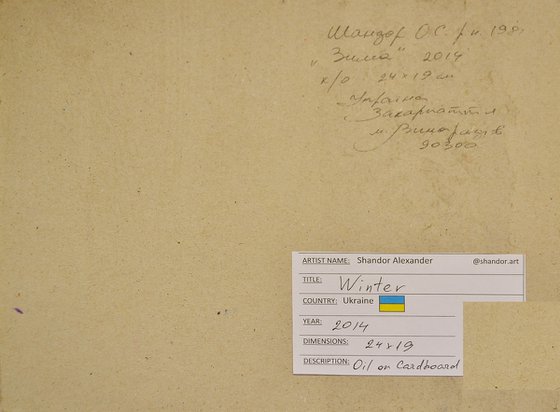 Шандор О.С. р.н. 198
„Зима“ 2014
к/о 24×19 см
Україна
Закарпаття
м. Виноградів
90300
ARTIST NAME: Shandor Alexander @shandor.art
TITLE: Winter
COUNTRY: Ukraine
YEAR: 2014
DIMENSIONS: 24×19
DESCRIPTION: Oil on Cardboard